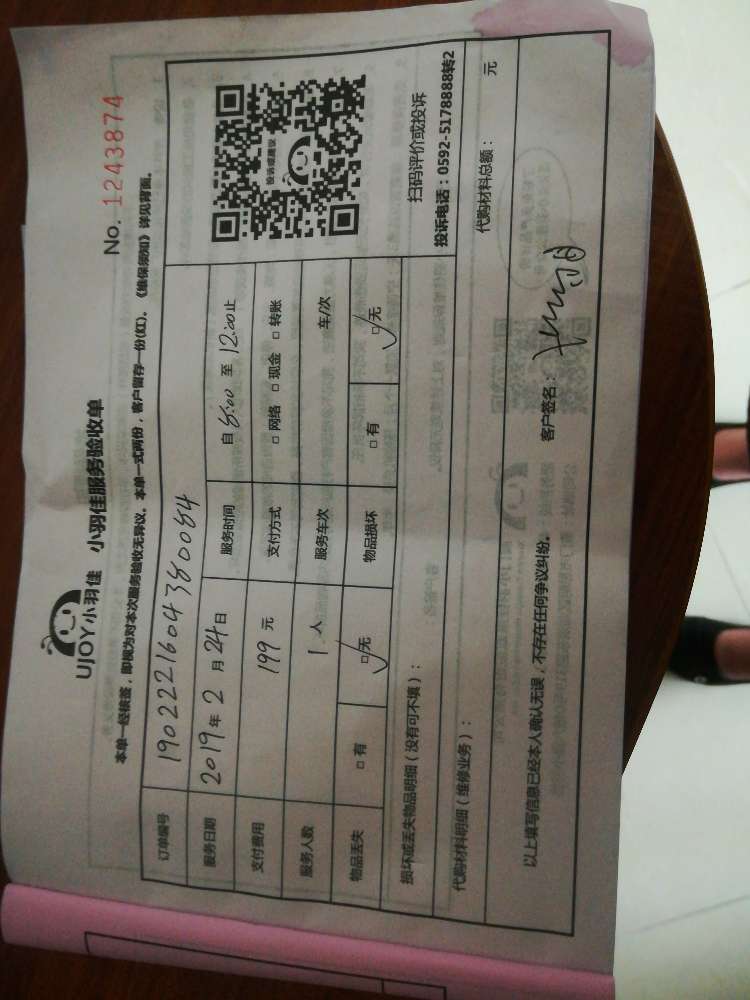 UJOY小羽佳 小羽佳服务验收单
No. 1243874
本单一经核签，即视为对本次服务验收无异议。本单一式两份，客户留存一份(红)。《维保须知》详见背面。
订单编号 1902221604380084
服务日期 2019年2月24日 服务时间 自8:00至12:00止
支付费用 199元 支付方式 □网络 □现金 □转账
服务人数 1人 服务车次 车/次
物品丢失 □有 ☑无 物品损坏 □有 ☑无
投诉或建议
扫码评价或投诉
投诉电话：0592-5178888转2
损坏或丢失物品明细（没有可不填）：
代购材料明细（维修业务）： 代购材料总额： 元
以上填写信息已经本人确认无误，不存在任何争议纠纷。 客户签名：